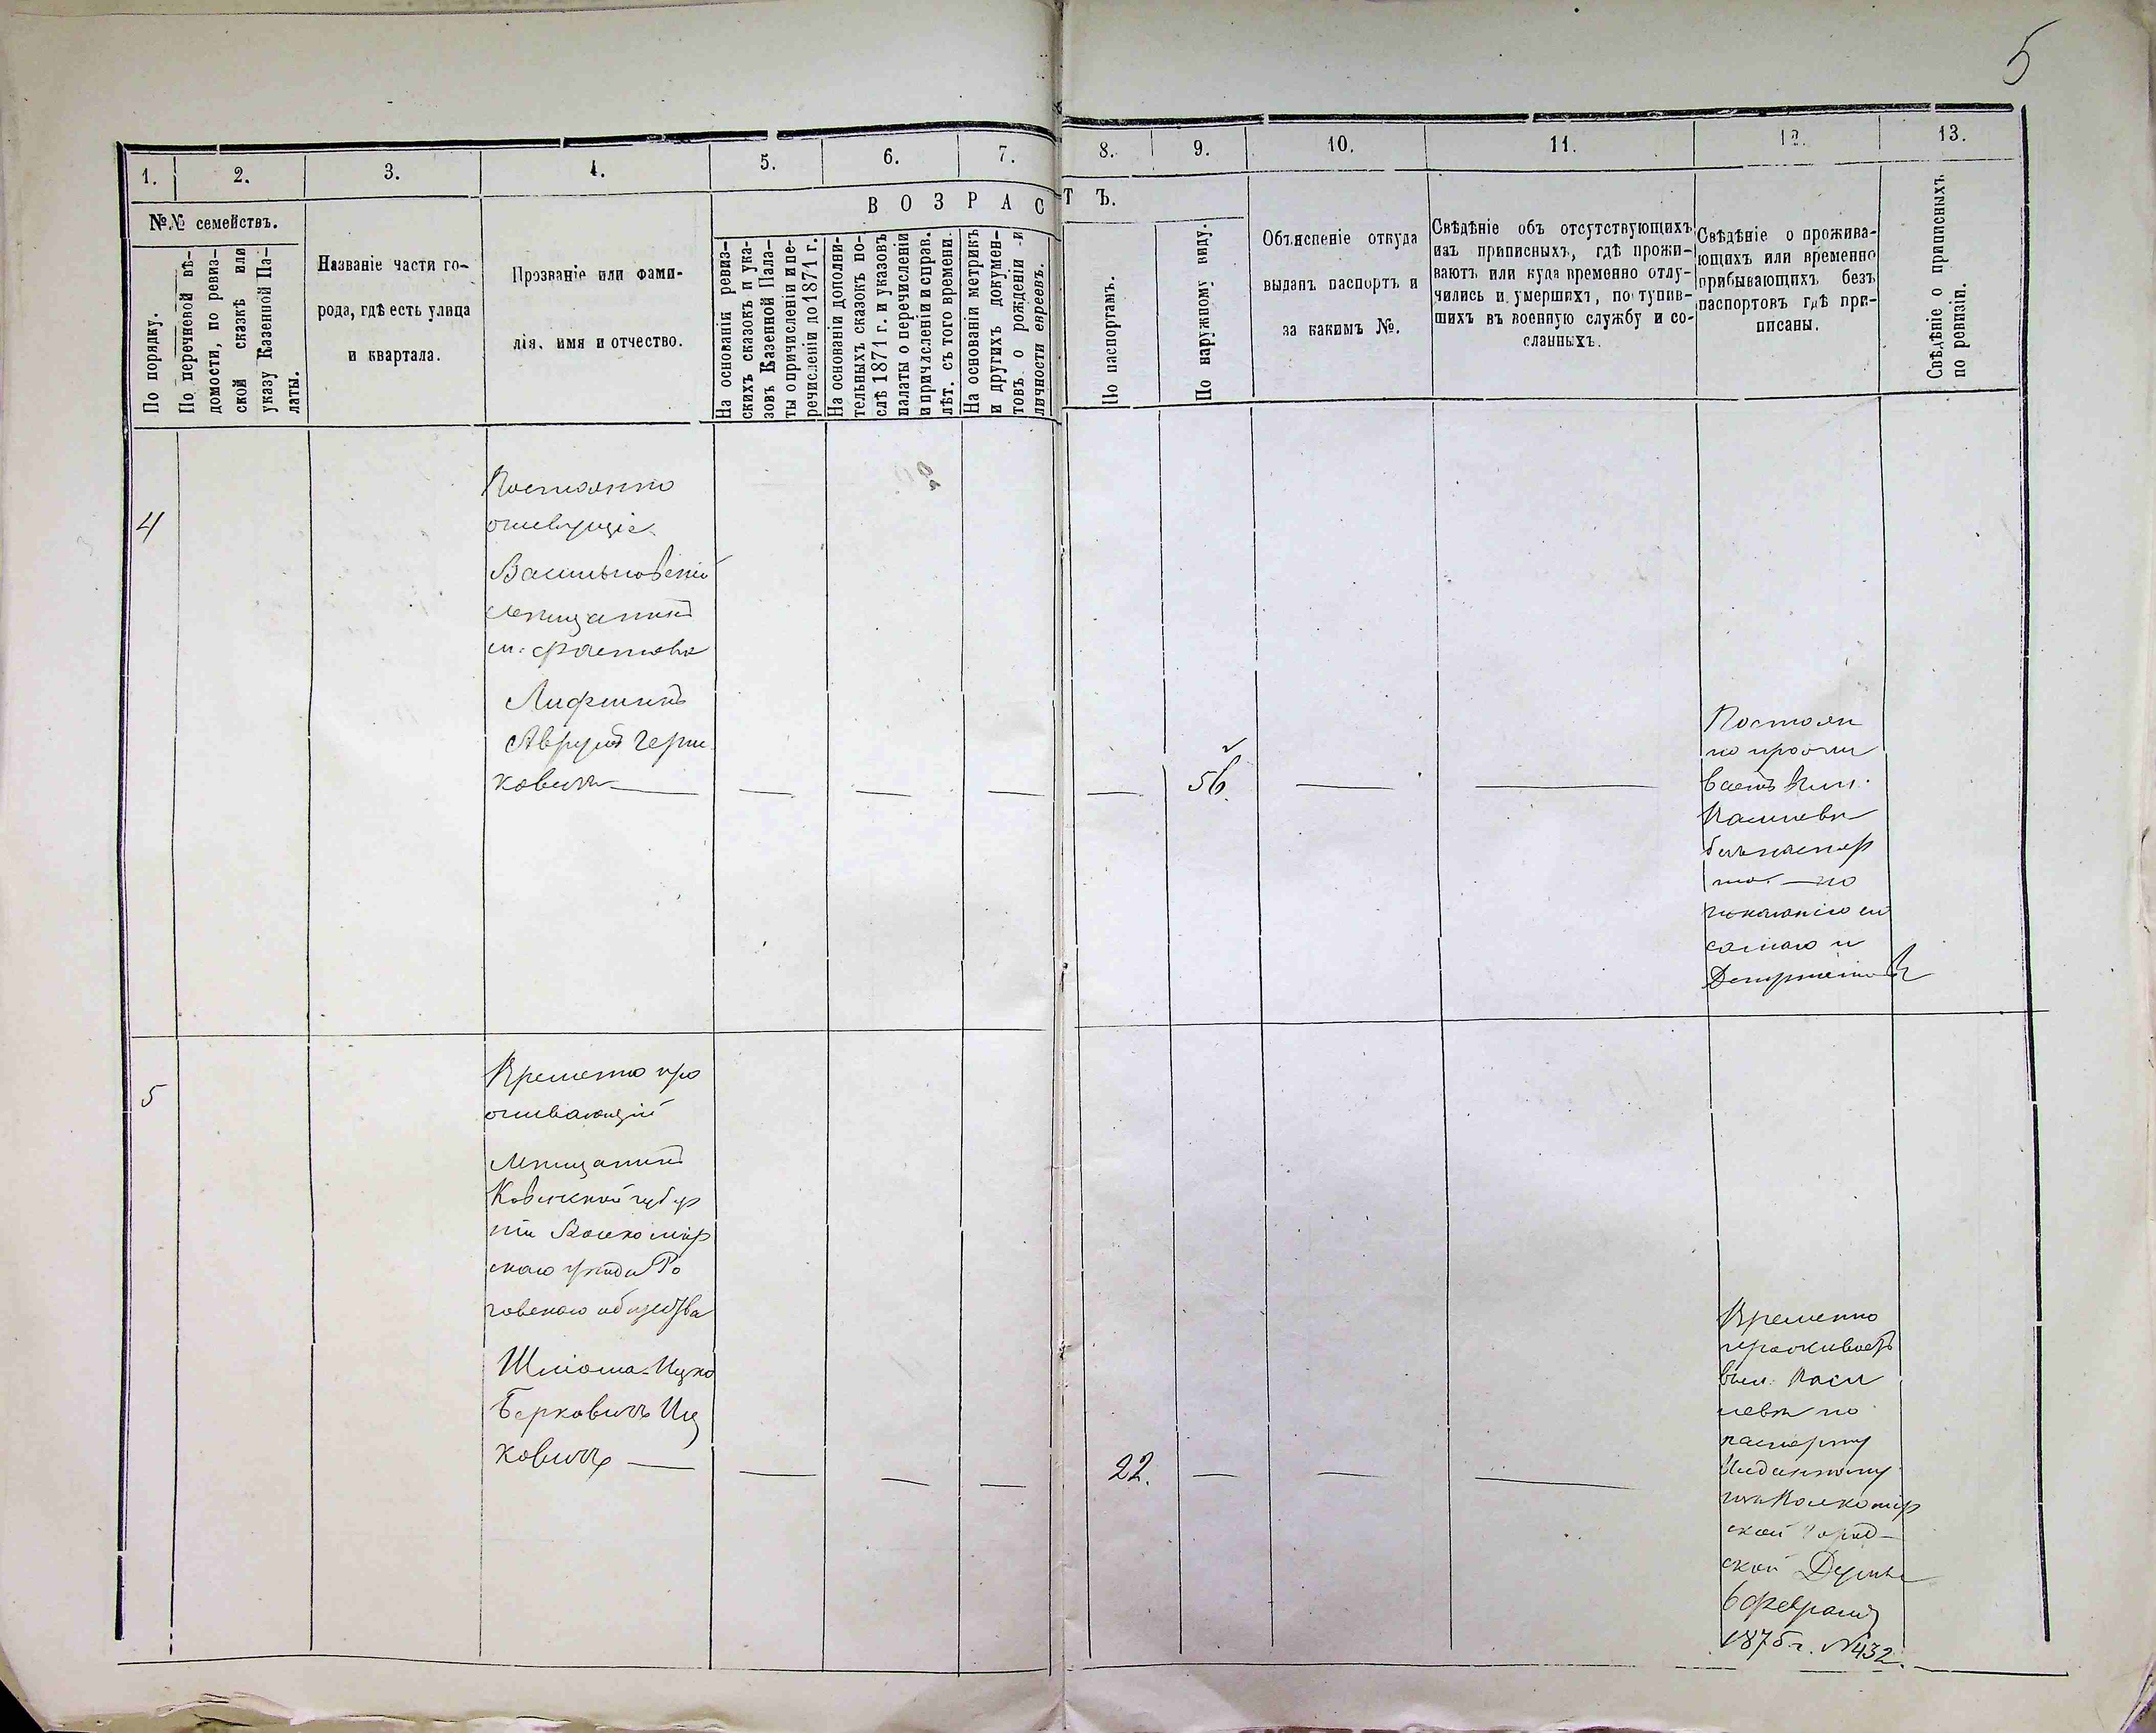 5
1.
2.
3.
4.
5.
6.
7.
8.
9.
10.
11.
12.
13.
№№ семействъ.
По порядку.
По перечневой вѣ-
домости, по ревиз-
ской сказкѣ или
указу Казенной Па-
латы.
Названіе части го-
рода, гдѣ есть улица
и квартала.
Прозваніе или фами-
лія, имя и отчество.
ВОЗРАСТЪ.
На основаніи ревиз-
скихъ сказокъ и ука-
зовъ Казенной Пала-
ты о причисленіи и пе-
речисленіи до 1871 г.
На основаніи дополни-
тельныхъ сказокъ по-
слѣ 1871 г. и указовъ
палаты о перечисленіи
и причисленіи и справ.
лѣт. съ того времени.
На основаніи метрикъ
и другихъ докумен-
товъ о рожденіи и
личности евреевъ.
По паспортамъ.
По наружному виду.
Объясненіе откуда
выданъ паспортъ и
за какимъ №.
Свѣдѣніе объ отсутствующихъ
изъ приписныхъ, гдѣ прожи-
ваютъ или куда временно отлу-
чились и умершихъ, поступив-
шихъ въ военную службу и со-
сланныхъ.
Свѣдѣніе о прожива-
ющихъ или временно
прибывающихъ безъ
паспортовъ гдѣ при-
писаны.
Свѣдѣніе о приписныхъ
по ревизіи.
4
Постоянно
живущіе
Васильковскій
мещанинъ
м. Фастова
Лифшицъ
Аврумъ Герш
ковичъ — — — — — 56 — —
Постоян
но прожи
ваетъ в м.
безъ паспор
та — по
показанію его
самаго и
5
Временно про
живающій
Мещанинъ
Ковенской губер
ніи Вилкомир
скаго уезда Ро
говскаго общества
Шлиома-Ицко
Берковичъ Иц
ковичъ — — — — 22. — — —
Временно
проживаетъ
в м.
по
паспорту
выданному
изъ Вилкомир
ской Город-
ской Думы
6 февраля
1875 г. № 432.